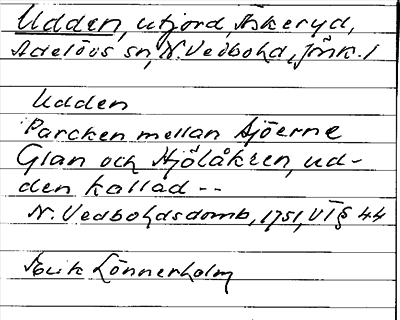 Udden, utjord, Askeryd,
Adelövs sn, N. Vedbohd, Jönk. l
Udden
Parcken mellan Sjöerne
Glan och Hjölåkren, ud-
den kallad --
N. Vedbohdsdomb, 1751, VT § 44
Lönnerholm